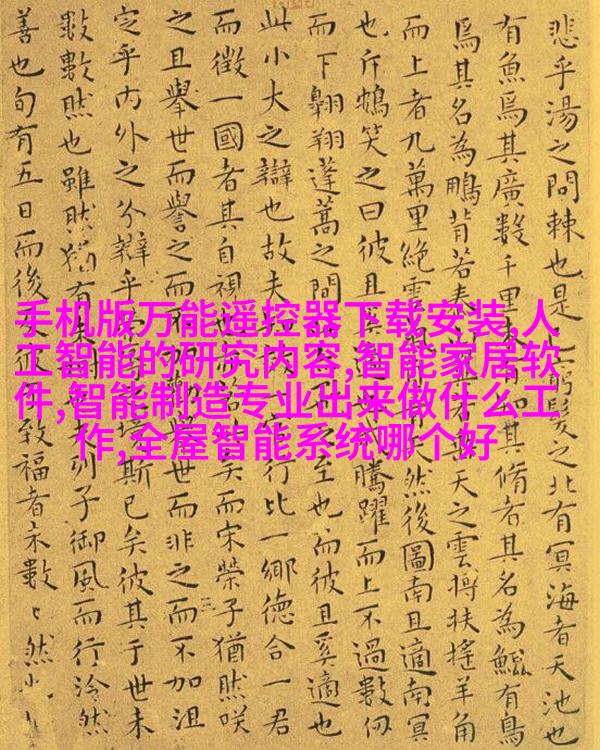 悲乎湯之問棘也是窮髮之北有冥海者天池也
有魚焉其廣數千里未有其脩者其名為鯤有鳥
焉其名為鵬背若泰天之雲摶扶搖羊角
而上者九萬里絕雲氣天然後圖南且適南冥
也斥鴳笑之曰彼且奚騰躍而上不過數仞
而下翱翔蓬蒿之間之至也而彼且奚適也
此小大之辯也故夫一行比一鄉德合一君
而徵一國者其自視矣而宋榮子猶然咲
之且舉世而譽之而不而非之而不加沮
定乎內外之分辯乎斯已矣彼其于世未
數數然也雖然猶有列子御風而行泠然
善也旬有五日而後致福者未數〻然也
手机版万能遥控器下载安装,人
工智能的研究内容,智能家居软
件,智能制造专业出来做什么工
作,全屋智能系统哪个好